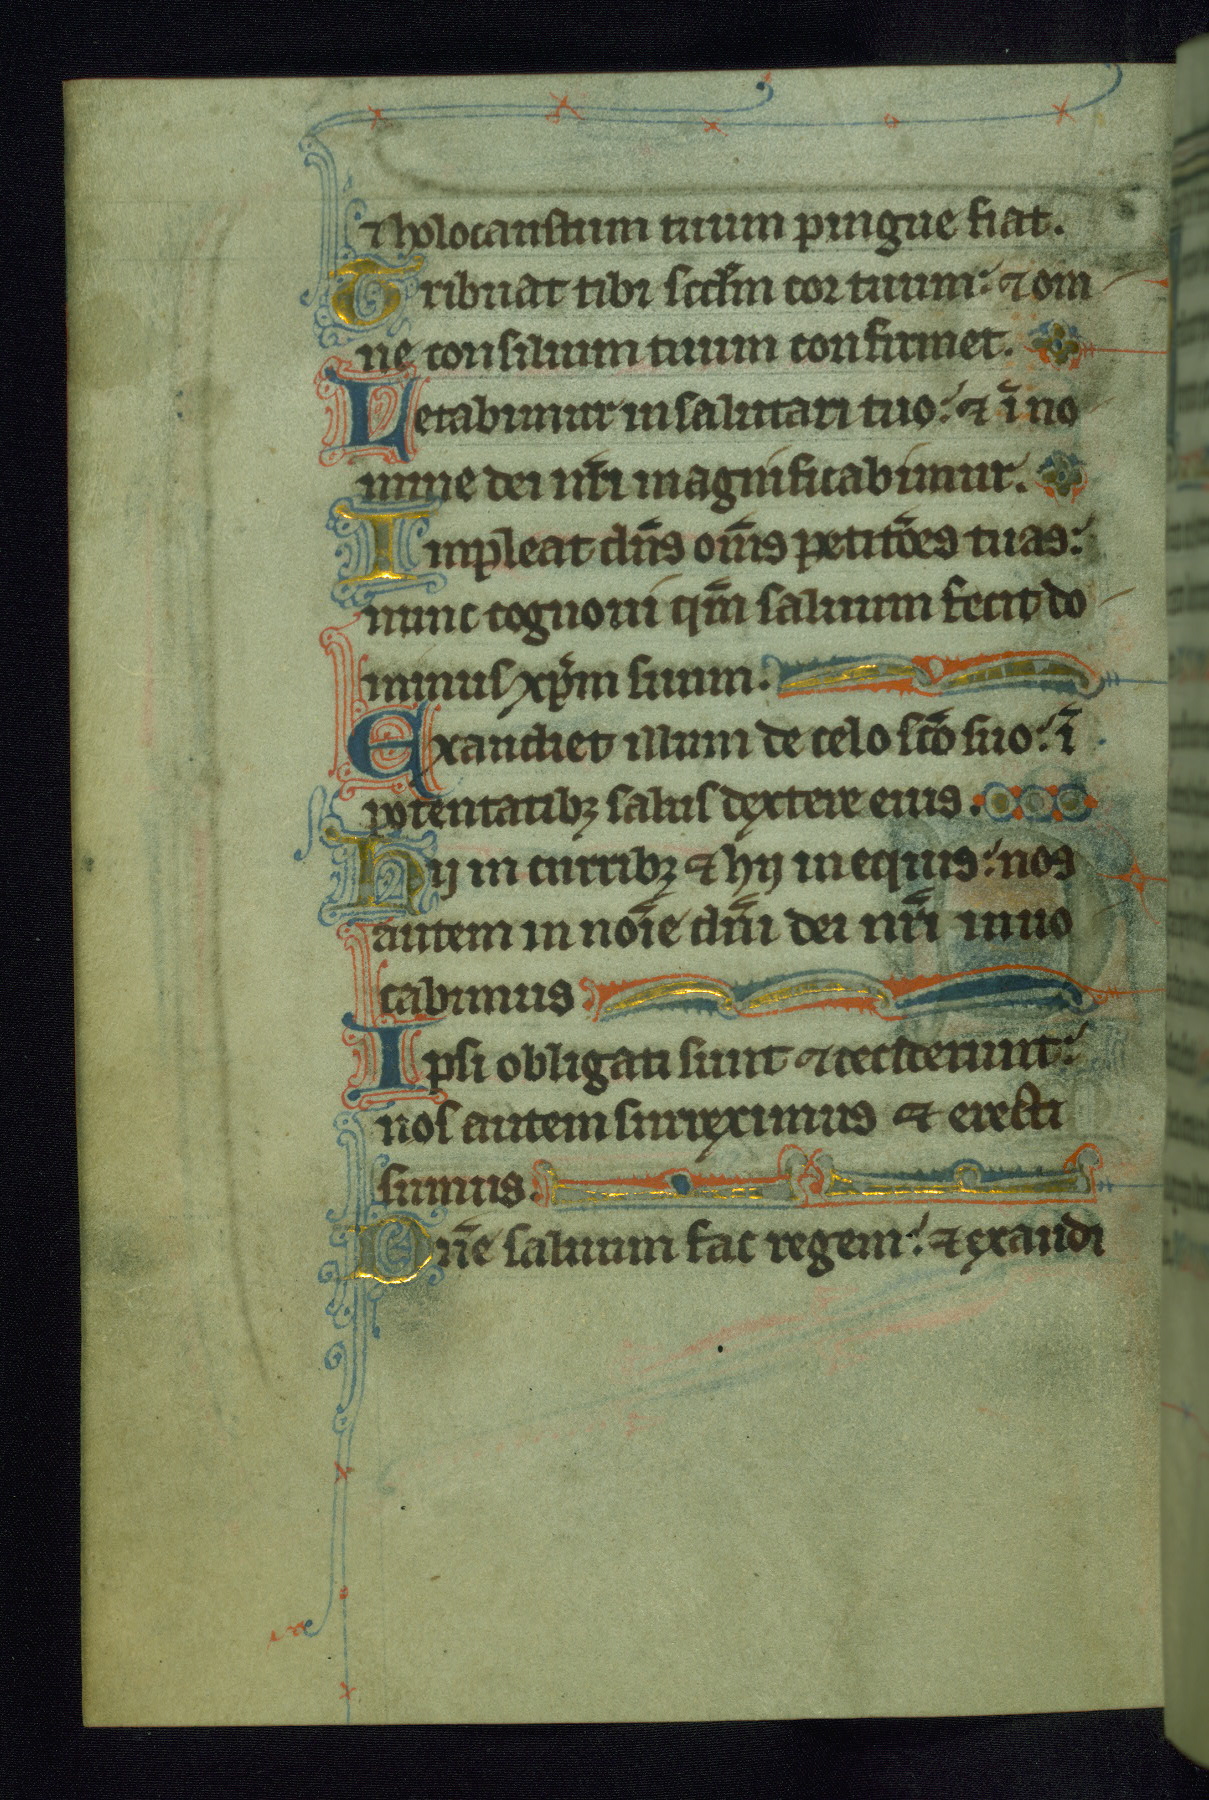 ⁊ holocaustum tuum pingue fiat.
Tribuat tibi scd̄m cor tuum: ⁊ om
ne consilium tuum confirmet.
Letabimur in salutari tuo: ⁊ ī no
mine dei nr̄i magnificabimur.
Impleat dn̄s om̄s petitōes tuas:
nunc cognoui qm̄ saluum fecit do
minus xp̄m suum.
Exaudiet illum de celo sc̄o suo: ī
potentatibꝫ salus dextere eius.
Hij in curribꝫ ⁊ hij in equis: nos
autem in noīe dn̄i dei nr̄i inuo
cabimus
Ipsi obligati sunt ⁊ ceciderunt:
nos autem surreximus ⁊ erecti
sumus.
Dn̄e saluum fac regem: ⁊ exaudi